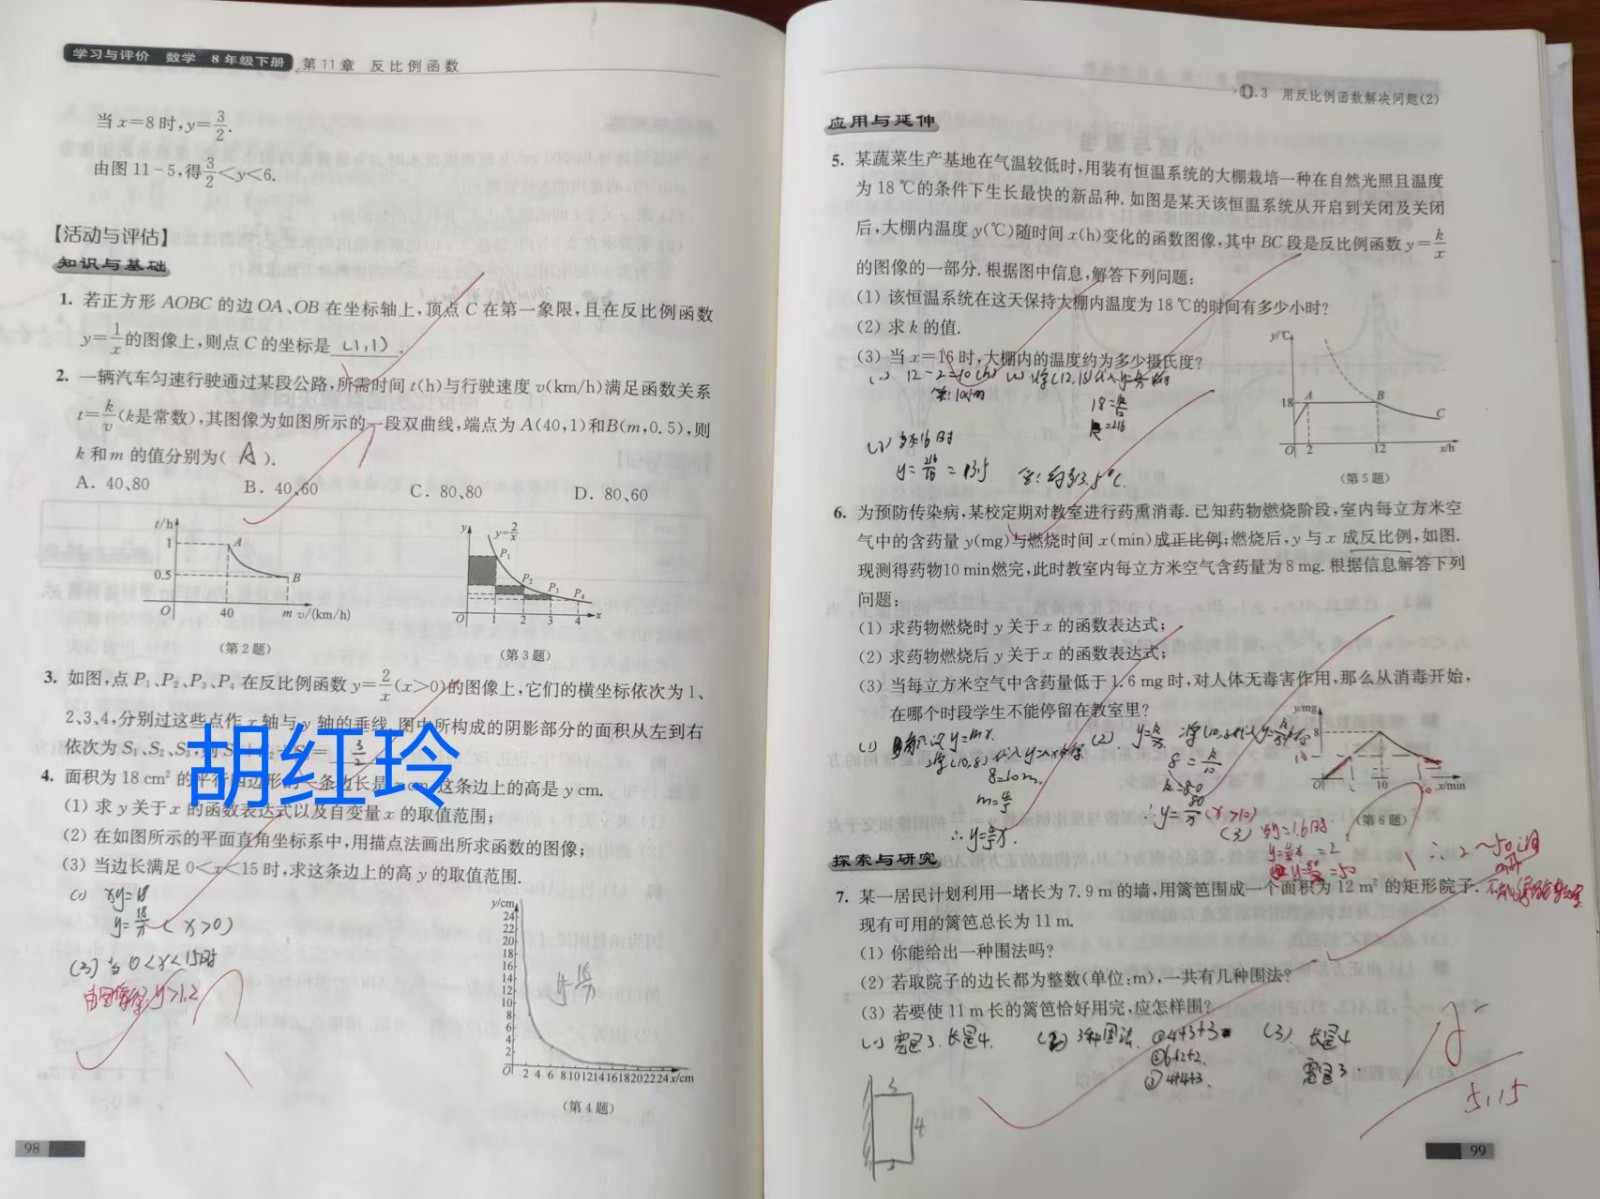 学习与评价 数学 8年级下册 第11章 反比例函数
当x=8时,y=3/2.
由图11-5,得3/2<y<6.
【活动与评估】
知识与基础
1. 若正方形AOBC的边OA、OB在坐标轴上,顶点C在第一象限,且在反比例函数
y=1/x的图像上,则点C的坐标是 (1,1) .
2. 一辆汽车匀速行驶通过某段公路,所需时间t(h)与行驶速度v(km/h)满足函数关系
t=k/v(k是常数),其图像为如图所示的一段双曲线,端点为A(40,1)和B(m,0.5),则
k和m的值分别为( A ).
A. 40,80 B. 40,60 C. 80,80 D. 80,60
t/h
1
A
0.5
B
O 40 m v/(km/h)
(第2题)
y
y=2/x
P₁
P₂ P₃ P₄
O 1 2 3 4 x
(第3题)
3. 如图,点P₁、P₂、P₃、P₄在反比例函数y=2/x(x>0)的图像上,它们的横坐标依次为1、
2、3、4,分别过这些点作x轴与y轴的垂线,图中所构成的阴影部分的面积从左到右
依次为S₁、S₂、S₃, 3/2
胡红玲
4. 面积为18 cm²的平行四边形的一条边长是 cm,这条边上的高是y cm.
(1) 求y关于x的函数表达式以及自变量x的取值范围;
(2) 在如图所示的平面直角坐标系中,用描点法画出所求函数的图像;
(3) 当边长满足0<x<15时,求这条边上的高y的取值范围.
(1) xy=18
y=18/x (x>0)
(3) 当0<x<15时
y>1.2
y/cm
24
22
20
18
16
14
12
10
8
6
4
2
O 2 4 6 8 10 12 14 16 18 20 22 24 x/cm
y=18/x
(第4题)
98
11.3 用反比例函数解决问题(2)
应用与延伸
5. 某蔬菜生产基地在气温较低时,用装有恒温系统的大棚栽培一种在自然光照且温度
为18 ℃的条件下生长最快的新品种.如图是某天该恒温系统从开启到关闭及关闭
后,大棚内温度y(℃)随时间x(h)变化的函数图像,其中BC段是反比例函数y=k/x
的图像的一部分.根据图中信息,解答下列问题:
(1) 该恒温系统在这天保持大棚内温度为18 ℃的时间有多少小时?
(2) 求k的值.
(3) 当x=16时,大棚内的温度约为多少摄氏度?
12-2=10(h)
18=k/12
k=216
y=216/16=13.5
答:约为13.5℃.
y/℃
18 A B
C
O 2 12 x/h
(第5题)
6. 为预防传染病,某校定期对教室进行药熏消毒.已知药物燃烧阶段,室内每立方米空
气中的含药量y(mg)与燃烧时间x(min)成正比例;燃烧后,y与x成反比例,如图.
现测得药物10 min燃完,此时教室内每立方米空气含药量为8 mg.根据信息解答下列
问题:
(1) 求药物燃烧时y关于x的函数表达式;
(2) 求药物燃烧后y关于x的函数表达式;
(3) 当每立方米空气中含药量低于1.6 mg时,对人体无毒害作用,那么从消毒开始,
在哪个时段学生不能停留在教室里?
8=10m
m=4/5
∴y=4/5x.
8=k/10
k=80
∴y=80/x (x>10)
(3) 当y=1.6时
y/mg
8
O 10 x/min
(第6题)
探索与研究
7. 某一居民计划利用一堵长为7.9 m的墙,用篱笆围成一个面积为12 m²的矩形院子.
现有可用的篱笆总长为11 m.
(1) 你能给出一种围法吗?
(2) 若取院子的边长都为整数(单位:m),一共有几种围法?
(3) 若要使11 m长的篱笆恰好用完,应怎样围?
(1) 宽是3.长是4. (2) 3种围法. ①4+3+3 (3) 长是4
②6+2+2 宽是3.
③4+4+3.
3
4
3
5.15
99